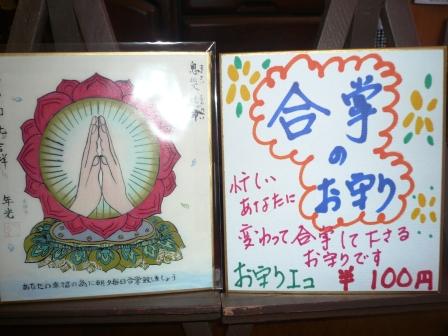 あなたの幸福の為に朝夕毎日合掌致しましょう
合掌
の
お守り
忙しい
あなたに
変わって合掌して下さる
お守りです
お守りエコ ¥100円